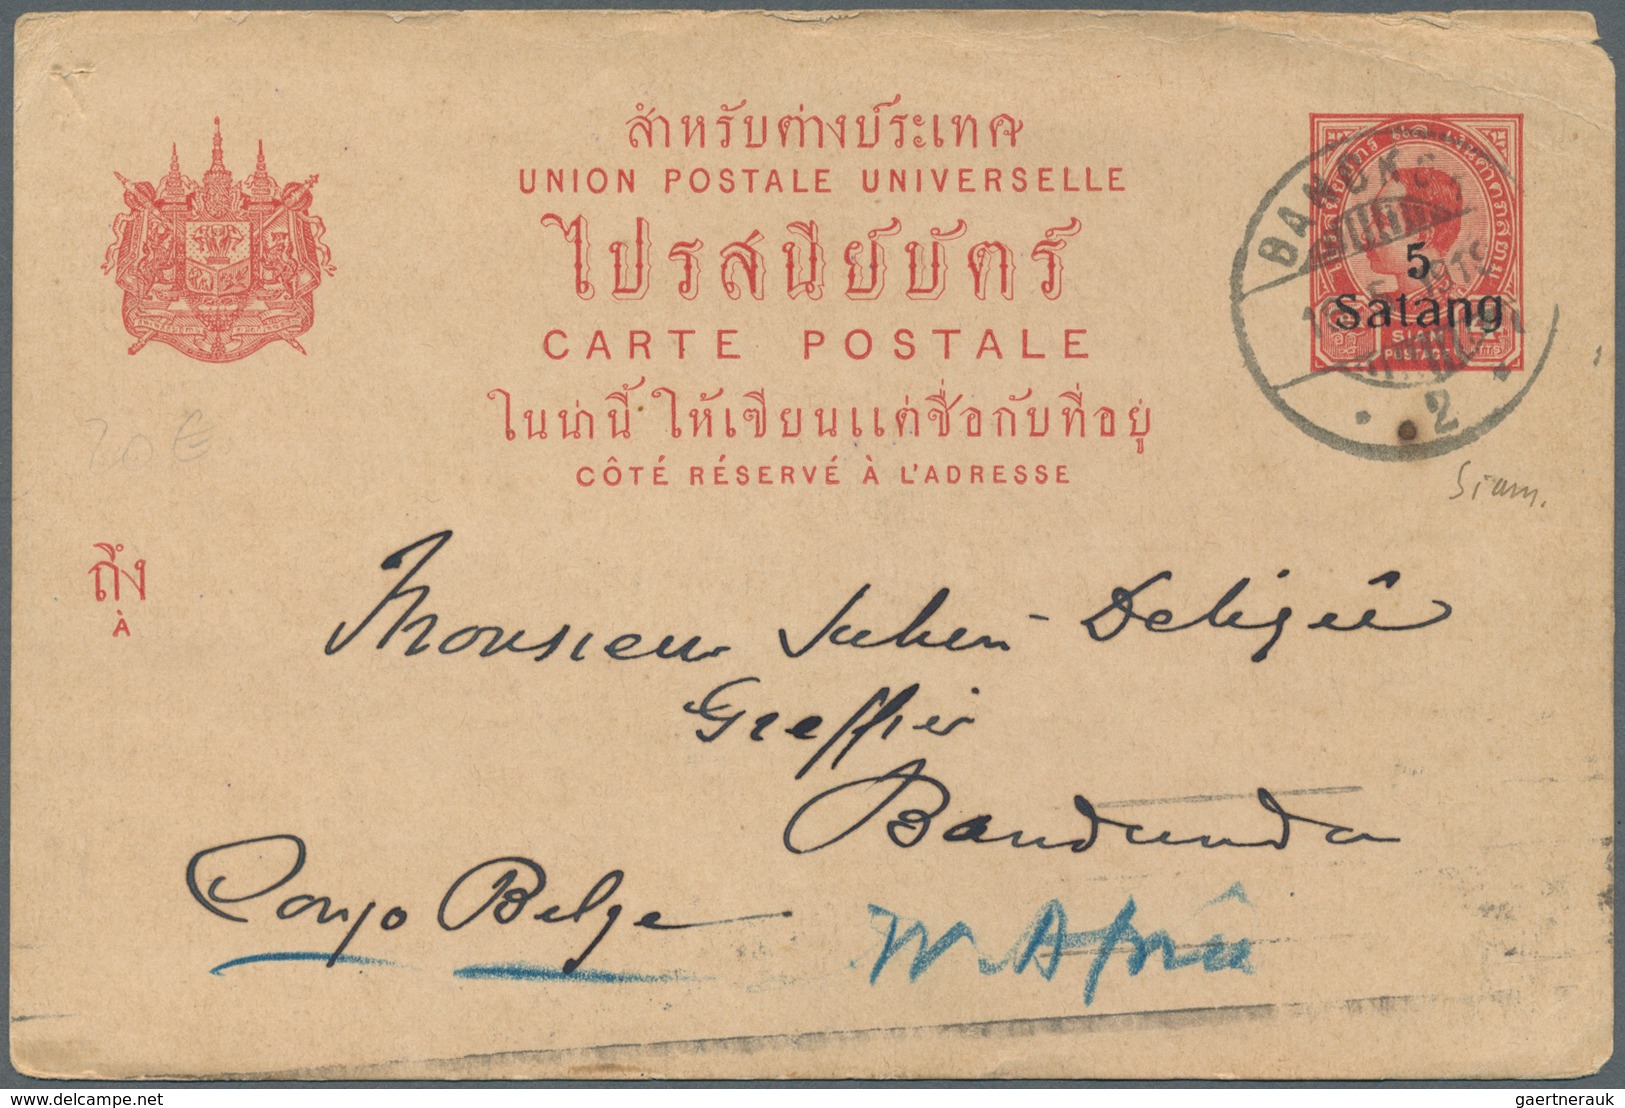 สำหรับต่างประเทศ
UNION POSTALE UNIVERSELLE
ไปรสนียบัตร์
CARTE POSTALE
ในน่านี้ ให้เขียนแต่ชื่อกับที่อยู่
CÔTÉ RÉSERVÉ À L'ADRESSE
BANGKOK
5
Satang
SIAM
POSTAGE
ATTS
2
20€
Siam.
ถึง
À
Monsieur Julien Deligée
Greffier
Bandunda
Congo Belge
W. Africa
delcampe.net
gaertnerauk